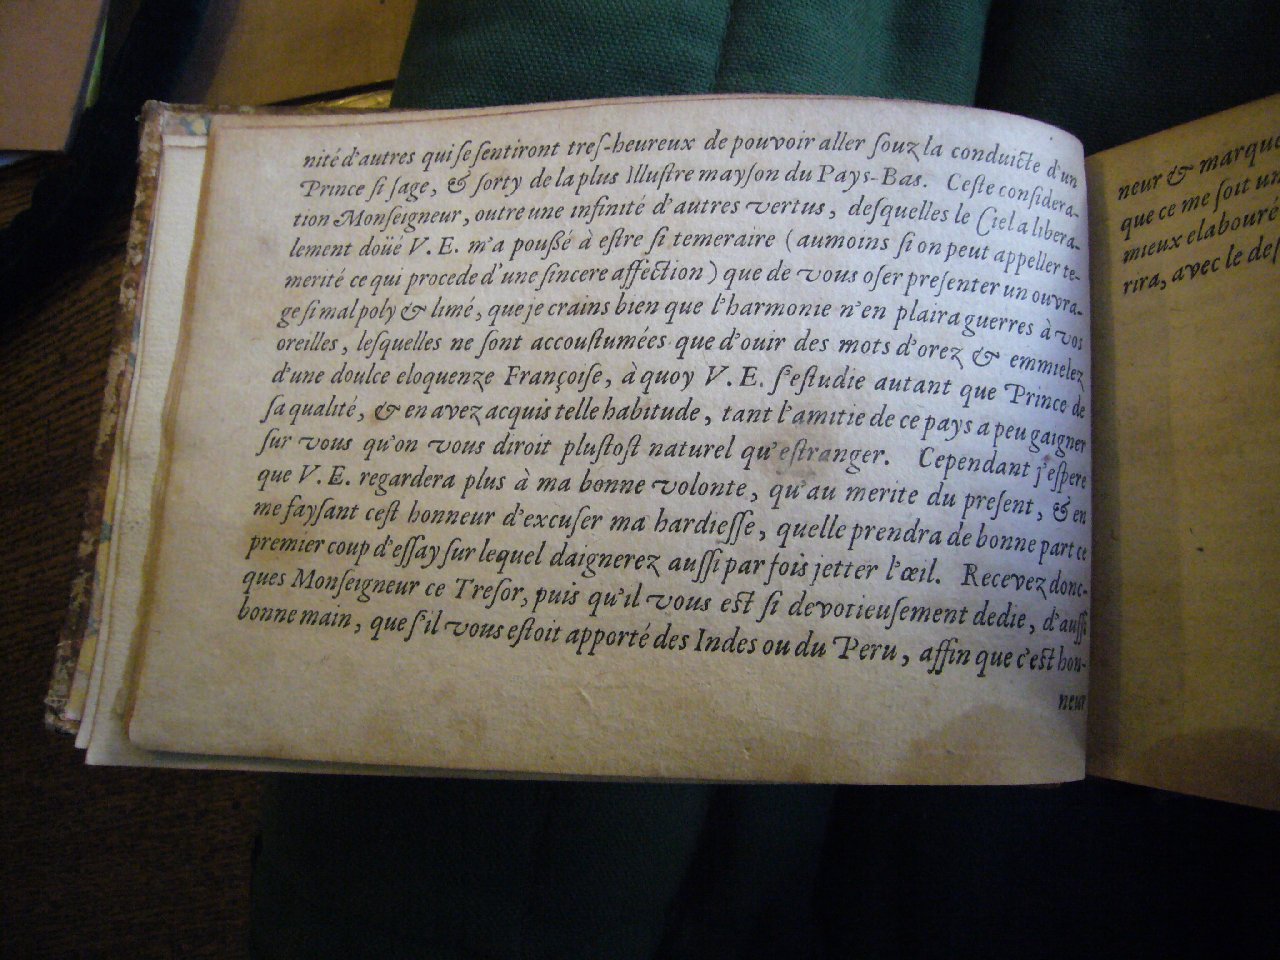 nité d'autres qui se sentiront tres-heureux de pouvoir aller souz la conduicte d'un
Prince si sage, & sorty de la plus Illustre mayson du Pays-Bas. Ceste considera-
tion Monseigneur, outre une infinité d'autres vertus, desquelles le Ciel a libera-
lement doüé V. E. m'a poußé à estre si temeraire (aumoins si on peut appeller te-
merité ce qui procede d'une sincere affection) que de vous oser presenter un ouvra-
ge si mal poly & limé, que je crains bien que l'harmonie n'en plaira guerres à vos
oreilles, lesquelles ne sont accoustumées que d'ouir des mots d'orez & emmielez
d'une doulce eloquenze Françoise, à quoy V. E. s'estudie autant que Prince de
sa qualité, & en avez acquis telle habitude, tant l'amitie de ce pays a peu gaigner
sur vous qu'on vous diroit plustost naturel qu'estranger. Cependant j'espere
que V. E. regardera plus à ma bonne volonte, qu'au merite du present, & en
me faysant cest honneur d'excuser ma hardiesse, quelle prendra de bonne part ce
premier coup d'essay sur lequel daignerez aussi par fois jetter l'œil. Recevez donc-
ques Monseigneur ce Tresor, puis qu'il vous est si devotieusement dedie, d'aussi
bonne main, que s'il vous estoit apporté des Indes ou du Peru, affin que c'est hon-
neur
neur & marque
que ce me soit un
mieux elabouré
rira, avec le des